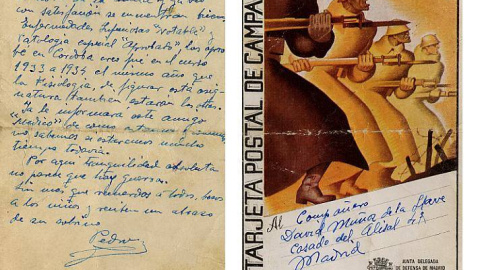 con satisfacción se encuentran bien
Enfermedades Infecciosas "notable" y
Patología especial "Aprobado" los apro
bé en Cordoba creo que en el curso
1933 a 1934 el mismo año que
la Fisiologia, de figurar está asig-
natura tambien estarán las otras.
Ya le informara este amigo
"medico" de como estamos
sabemos si estaremos mucho
tiempo todavia.
Por aquí tranquilidad absoluta
no parece que hay guerra.
Sin más que recuerdos a todos, besos
a los niños y reciben un abrazo
de su sobrino
Pedro
TARJETA POSTAL DE CAMPA
Al Compañero
David Muñoz de la Nava
Casado del Alisal nº
Madrid
JUNTA DELEGADA
DE DEFENSA DE MADRID